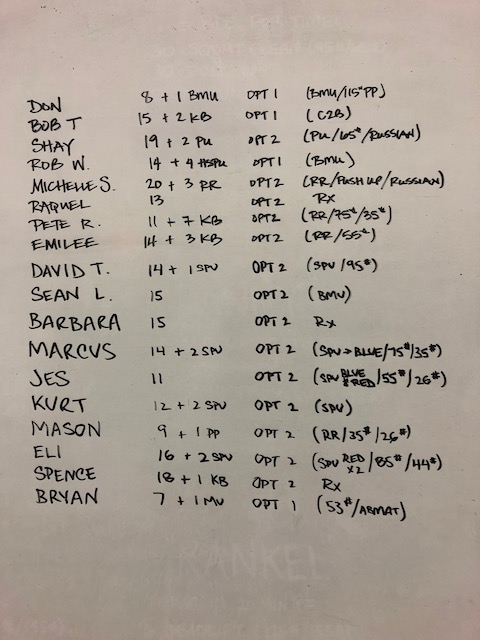 DON 8 + 1 BMU OPT 1 (BMU/115#PP)
BOB T 15 + 2 KB OPT 1 (C2B)
SHAY 19 + 2 PU OPT 2 (PU/65#/RUSSIAN)
ROB W. 14 + 4 HSPU OPT 1 (BMU)
MICHELLE S. 20 + 3 RR OPT 2 (RR/PUSH UP/RUSSIAN)
RAQUEL 13 OPT 2 RX
PETE R. 11 + 7 KB OPT 2 (RR/75#/35#)
EMILEE 14 + 3 KB OPT 2 (RR/55#)
DAVID T. 14 + 1 SPU OPT 2 (SPU/95#)
SEAN L. 15 OPT 2 (BMU)
BARBARA 15 OPT 2 Rx
MARCUS 14 + 2 SPU OPT 2 (SPU → BLUE/75#/35#)
JES 11 OPT 2 (SPU BLUE & RED/55#/26#)
KURT 12 + 2 SPU OPT 2 (SPU)
MASON 9 + 1 PP OPT 2 (RR/35#/26#)
ELI 16 + 2 SPU OPT 2 (SPU RED X2/85#/44#)
SPENCE 18 + 1 KB OPT 2 Rx
BRYAN 7 + 1 MU OPT 1 (53#/ABMAT)
RANKEL